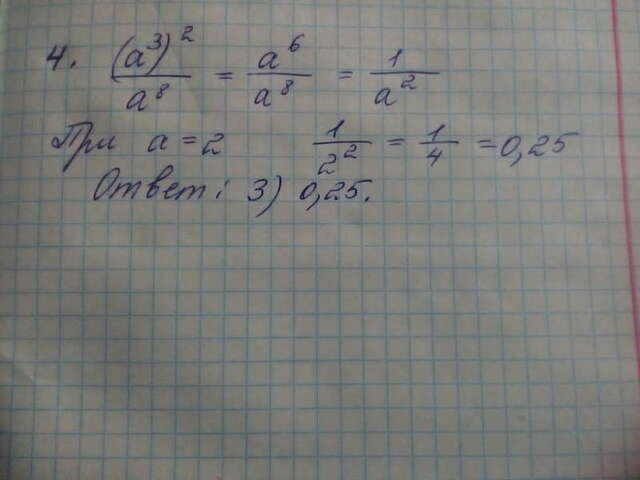 4. (a³)²/a⁸ = a⁶/a⁸ = 1/a²
При a = 2 1/2² = 1/4 = 0,25
Ответ: 3) 0,25.